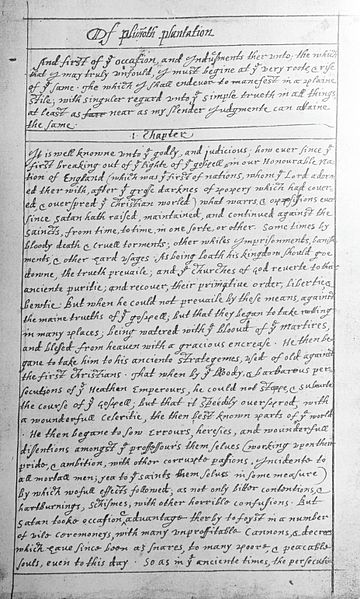 Of plim̃oth plantation
And first of yᵉ occasion, and Indusments ther unto; the which
that I may truly unfould, I must begine at yᵉ very roote, & rise
of yᵉ same. The which I shall endevor to manefest in a plaine
stile; with singuler regard unto yᵉ simple trueth in all things
at least as near as my slender Judgmente can attaine
the same.
1. Chapter
It is well knowne unto yᵉ godly, and judicious; how ever since yᵉ
first breaking out of yᵉ lighte of yᵉ gospell, in our Honourable na-
tion of England (which was yᵉ first of nations, whom yᵉ Lord adorn-
ed ther with, after yᵉ grose darknes of popery which had cover-
ed, & overspred yᵉ christian world) what warrs, & opposissions ever
since satan hath raised, maintained, and continued against the
saincts, from time, to time, in one sorte, or other. Some times by
bloody death & cruell torments; other whiles Imprisonments, banish-
ments, & other hard usages. As being loath his kingdom should goe
downe, the trueth prevaile; and yᵉ churches of god reverte to their
anciente puritie; and recover, their primative order, libertie, &
bewtie. But when he could not prevaile by these means, against
the maine trueths of yᵉ gospell; but that they began to take rooting
in many places; being watered with yᵉ bloud of yᵉ martires,
and blesed from heaven with a gracious encrease. He then be-
gane to take him to his anciente strategemes, used of old against
the first christians. That when by yᵉ bloody, & barbarous per-
secutions of yᵉ Heathen Emperours, he could not stoppe, & subverte
the course of yᵉ gospell; but that it speedily overspred, with
a wounderfull celeritie, the then best known parts of yᵉ world.
He then begane to sow Errours, heresies, and wounderfull
disentions amongst yᵉ professours them selves (working upon their
pride, & ambition, with other corrupte pasions, Incidente to
all mortall men; yea to yᵉ saints them selves in some measure)
by which wofull effects followed; as not only bitter contentions, &
hartburnings, schismes, with other horrible confusions. But
Satan tooke occasion & advantage therby to foyst in a number
of vile ceremoneys, with many unproffitable Cannons, & decrees
which have since been as snares, to many poore, & peaceable
souls, even to this day. So as in yᵉ anciente times, the persecuti-